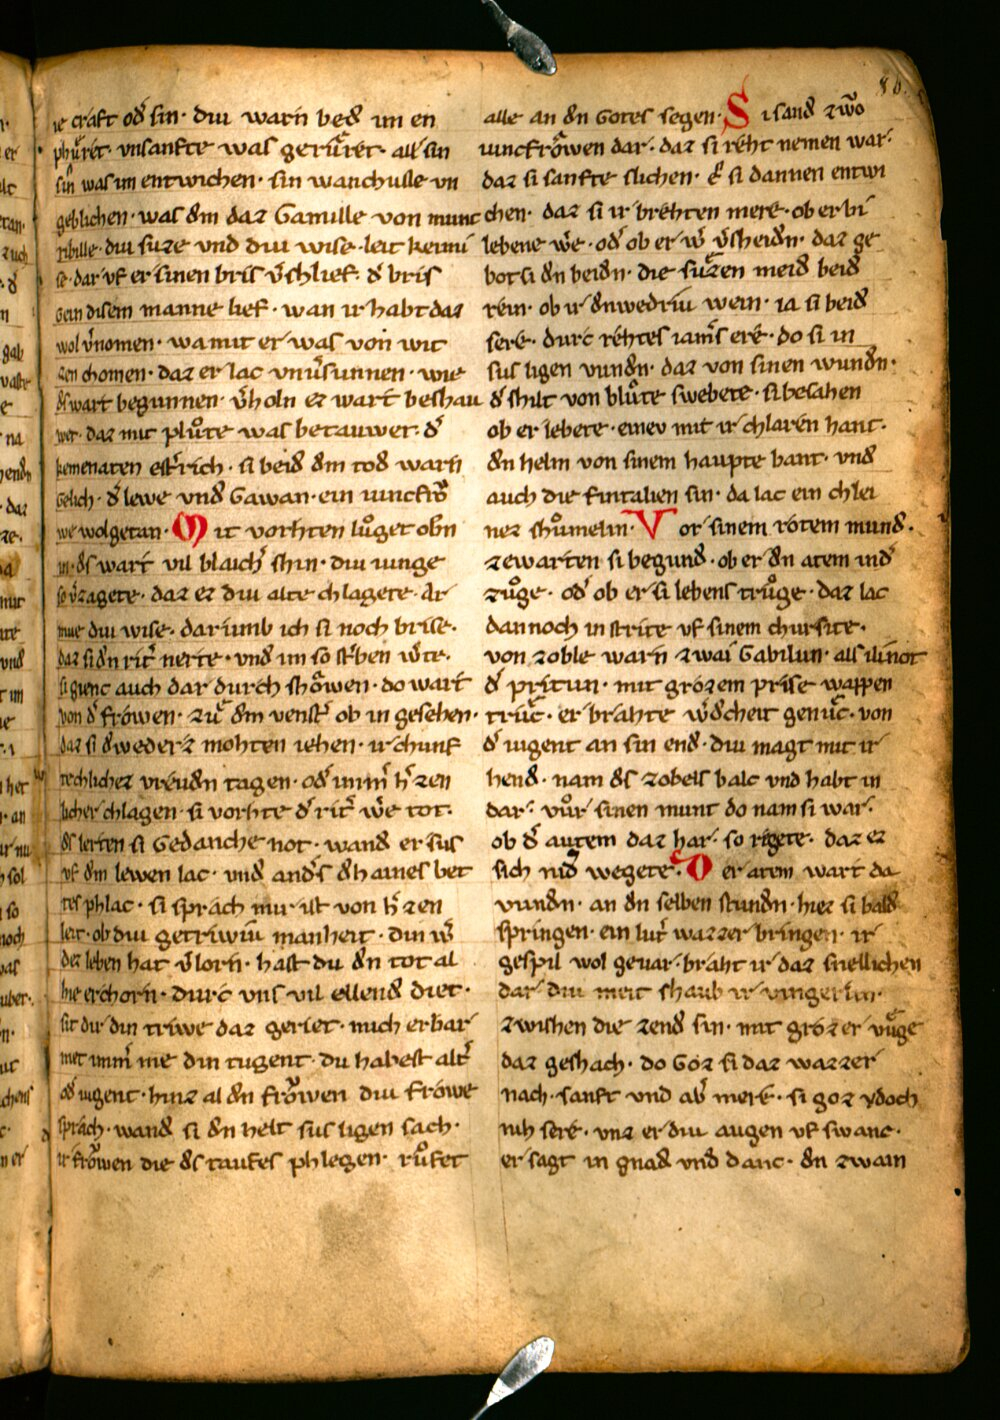 86.
ie craft od͛ sin · diu warn bed͛ im en
phuͦret · vnsanfte was geruͦret · all sin
sin was im entwichen · sin wanchusse vn
geblichen · was dem daz Gamille von munt
ribille · diu suze vnd diu wise · leit kenni
se · dar vf er sinen bris v͛schlief · d͛ bris
gein disem manne lief · wan ir habt daz
wol v͛nomen · wa mit er was von wit
zen chomen · daz er lac vnv͛sunnen · wie
des wart begunnen · v͛holn ez wart beshau
wet · daz mit pluͦte was betauwet · d͛
kemenaten est͛rich · si beid͛ dem tod͛ warn
gelich · d͛ lewe vnd͛ Gawan · ein iuncfroͮ
we wolgetan · Mit vorhten luͦget obn
in · des wart vil blaich͛ shin · diu iunge
so v͛zagete · daz ez diu alte chlagete · Ar
niue diu wise · dar umb ich si noch brise ·
daz si den rit͛ nerte · vnd͛ im so st͛ben w͛te ·
si gienc auch dar durch shoͮwen · do wart
von d͛ froͮwen · zuͦ dem venst͛ ob in gesehen ·
daz si dweder͛z mohten iehen · ir chunf
techlichez vreuden tagen · od͛ imm͛ h͛zen
licher chlagen · si vorhte d͛ rit͛ w͛e tot ·
des lerten si Gedanche not · wand͛ er sus
vf dem lewen lac · vnd͛ and͛s dehaines bet
tes phlac · si sprach mir ist von h͛zen
leit · ob diu getriwiu manheit · din w͛
dez leben hat v͛lorn · hast du den tot al
hie erchorn · durc vns vil ellend͛ diet ·
sit dir din triwe daz geriet · mich erbar
met imm͛ me din tugent · du habest alt͛
od͛ iugent · hinz al den froͮwen diu frowe
sprach · wand͛ si den helt sus ligen sach ·
ir froͮwen die des taufes phlegen · ruͦfet
alle an den Gotes segen · Si sand͛ zwo
iuncfroͮwen dar · daz si reht nemen war ·
daz si sanfte slichen · e͛ si dannen entwi
chen · daz si ir brehten mere · ob er bi
lebene w͛e · od͛ ob er w͛ v͛sheiden · daz ge
bot si den beiden · die suͦzen meid͛ beid͛
rein · ob ir denwedriu wein · ia si beid͛
sere · durc rehtes iam͛s ere · do si in
sus ligen vunden · daz von sinen wunden ·
d͛ shilt von bluͦte swebete · si besahen
ob er lebete · einev mit ir chlaren hant ·
den helm von sinem haupte bant · vnd͛
auch die fintalien sin · da lac ein chlei
nez shuͦmelin · Vor sinem rotem mund͛ ·
zewarten si begund͛ · ob er den atem ind͛
zuͦge · od͛ ob er si lebens truͦge · daz lac
dannoch in strite vf sinem chursite ·
von zoble warn zwai Gabilun · als ilinot
d͛ pritun · mit grozem prise wappen
truͦc · er brahte w͛decheit genuͦc · von
d͛ iugent an sin end͛ · diu magt mit ir
hend͛ · nam des zobels balc vnd habt in
dar · vuͦr sinen munt do nam si war ·
ob d͛ autem daz har · so rigete · daz ez
sich nid͛ wegete · Der atem wart da
vunden · an den selben stunden · hiez si bald͛
springen · ein lut͛ wazzer bringen · ir
gespil wol gevar · braht ir daz snellichen
dar · diu meit shaub ir vingerlin ·
zwishen die zend͛ sin · mit grozer vuͦge
daz geshach · do Goz si daz wazzer
nach · sanft vnd ab͛ mere · si goz ydoch
nih sere · vnz er diu augen vf swanc ·
er sagt in gnad͛ vnd danc · den zwain